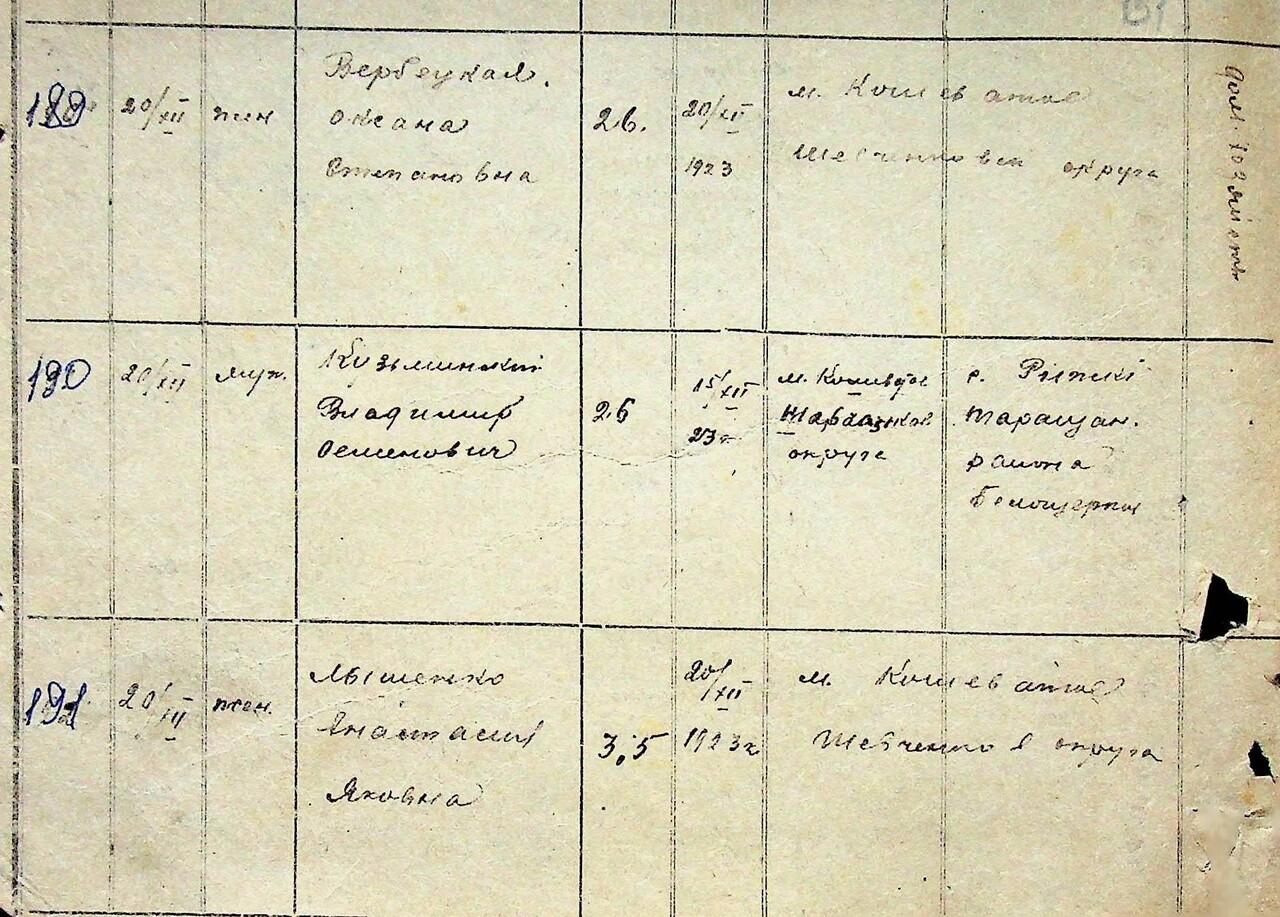 189
20/XII
жен
Вербецкая
Оксана
Степановна
26.
20/XII
1923
м. Кошеватое
Шевченковск округа
190
20/XII
муж.
Кузьминский
Владимир
Семенович
26
15/XII
23г
м. Кошеватое
округа
с.
Таращан.
района
Белоцерков
191
20/XII
жен.
Лышенко
Анастасия
Яковна
3,5
20/XII
1923г
м. Кошеватое
Шевченков округа